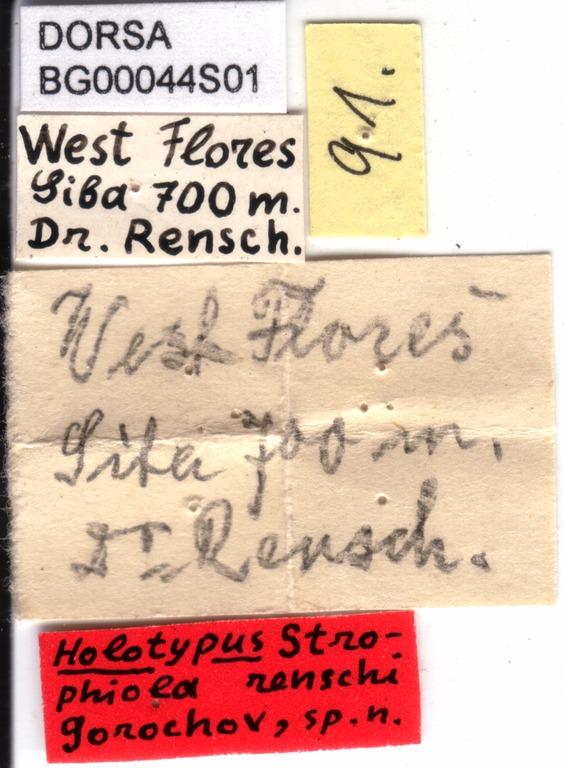 DORSA
BG00044S01
91.
West Flores
Siba 700 m.
Dr. Rensch.
West Flores
Sita 700 m.
Dr Rensch.
Holotypus Stro-
phiola renschi
gorochov, sp. n.